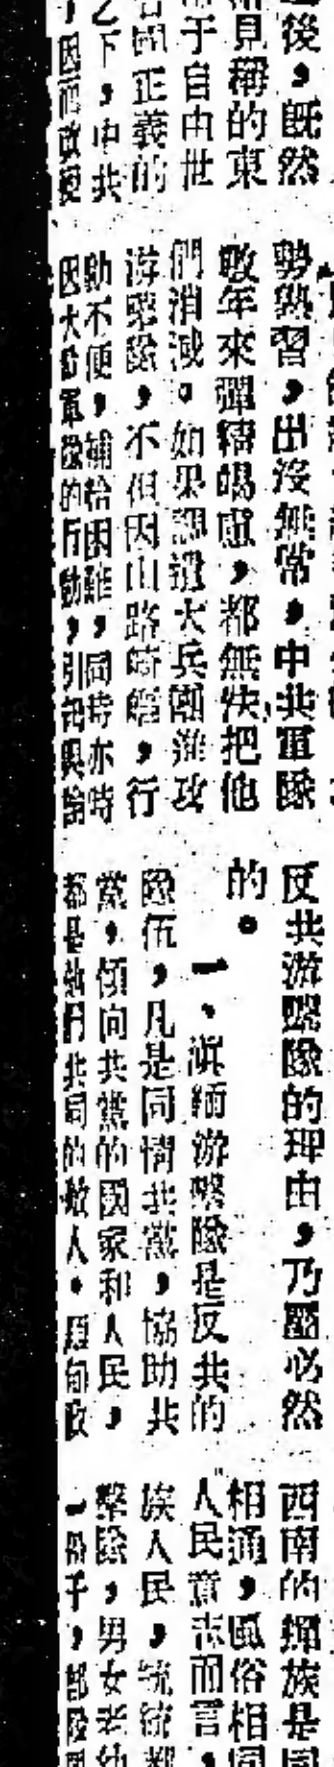 後，既然
見稱的東
于自由世
國正義的
之下，中共
因而改變
勢熟習，出沒無常，中共軍隊
數年來殫精竭慮，都無法把他
們消滅。如果調遣大兵團進攻
游擊隊，不但因山路崎嶇，行
動不便，補給困難，同時亦時
因大股軍隊的行動，引起輿論
反共游擊隊的理由，乃屬必然
的。
一、滇緬游擊隊是反共的
隊伍，凡是同情共黨，協助共
黨，傾向共黨的國家和人民，
都是他們共同的敵人。
西南的撣族是同
相通，風俗相同
人民意志而言，
族人民，統統都
擊隊，男女老幼
一份子，